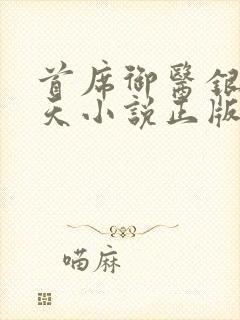 首席御醫銀
天小說正版
喵麻